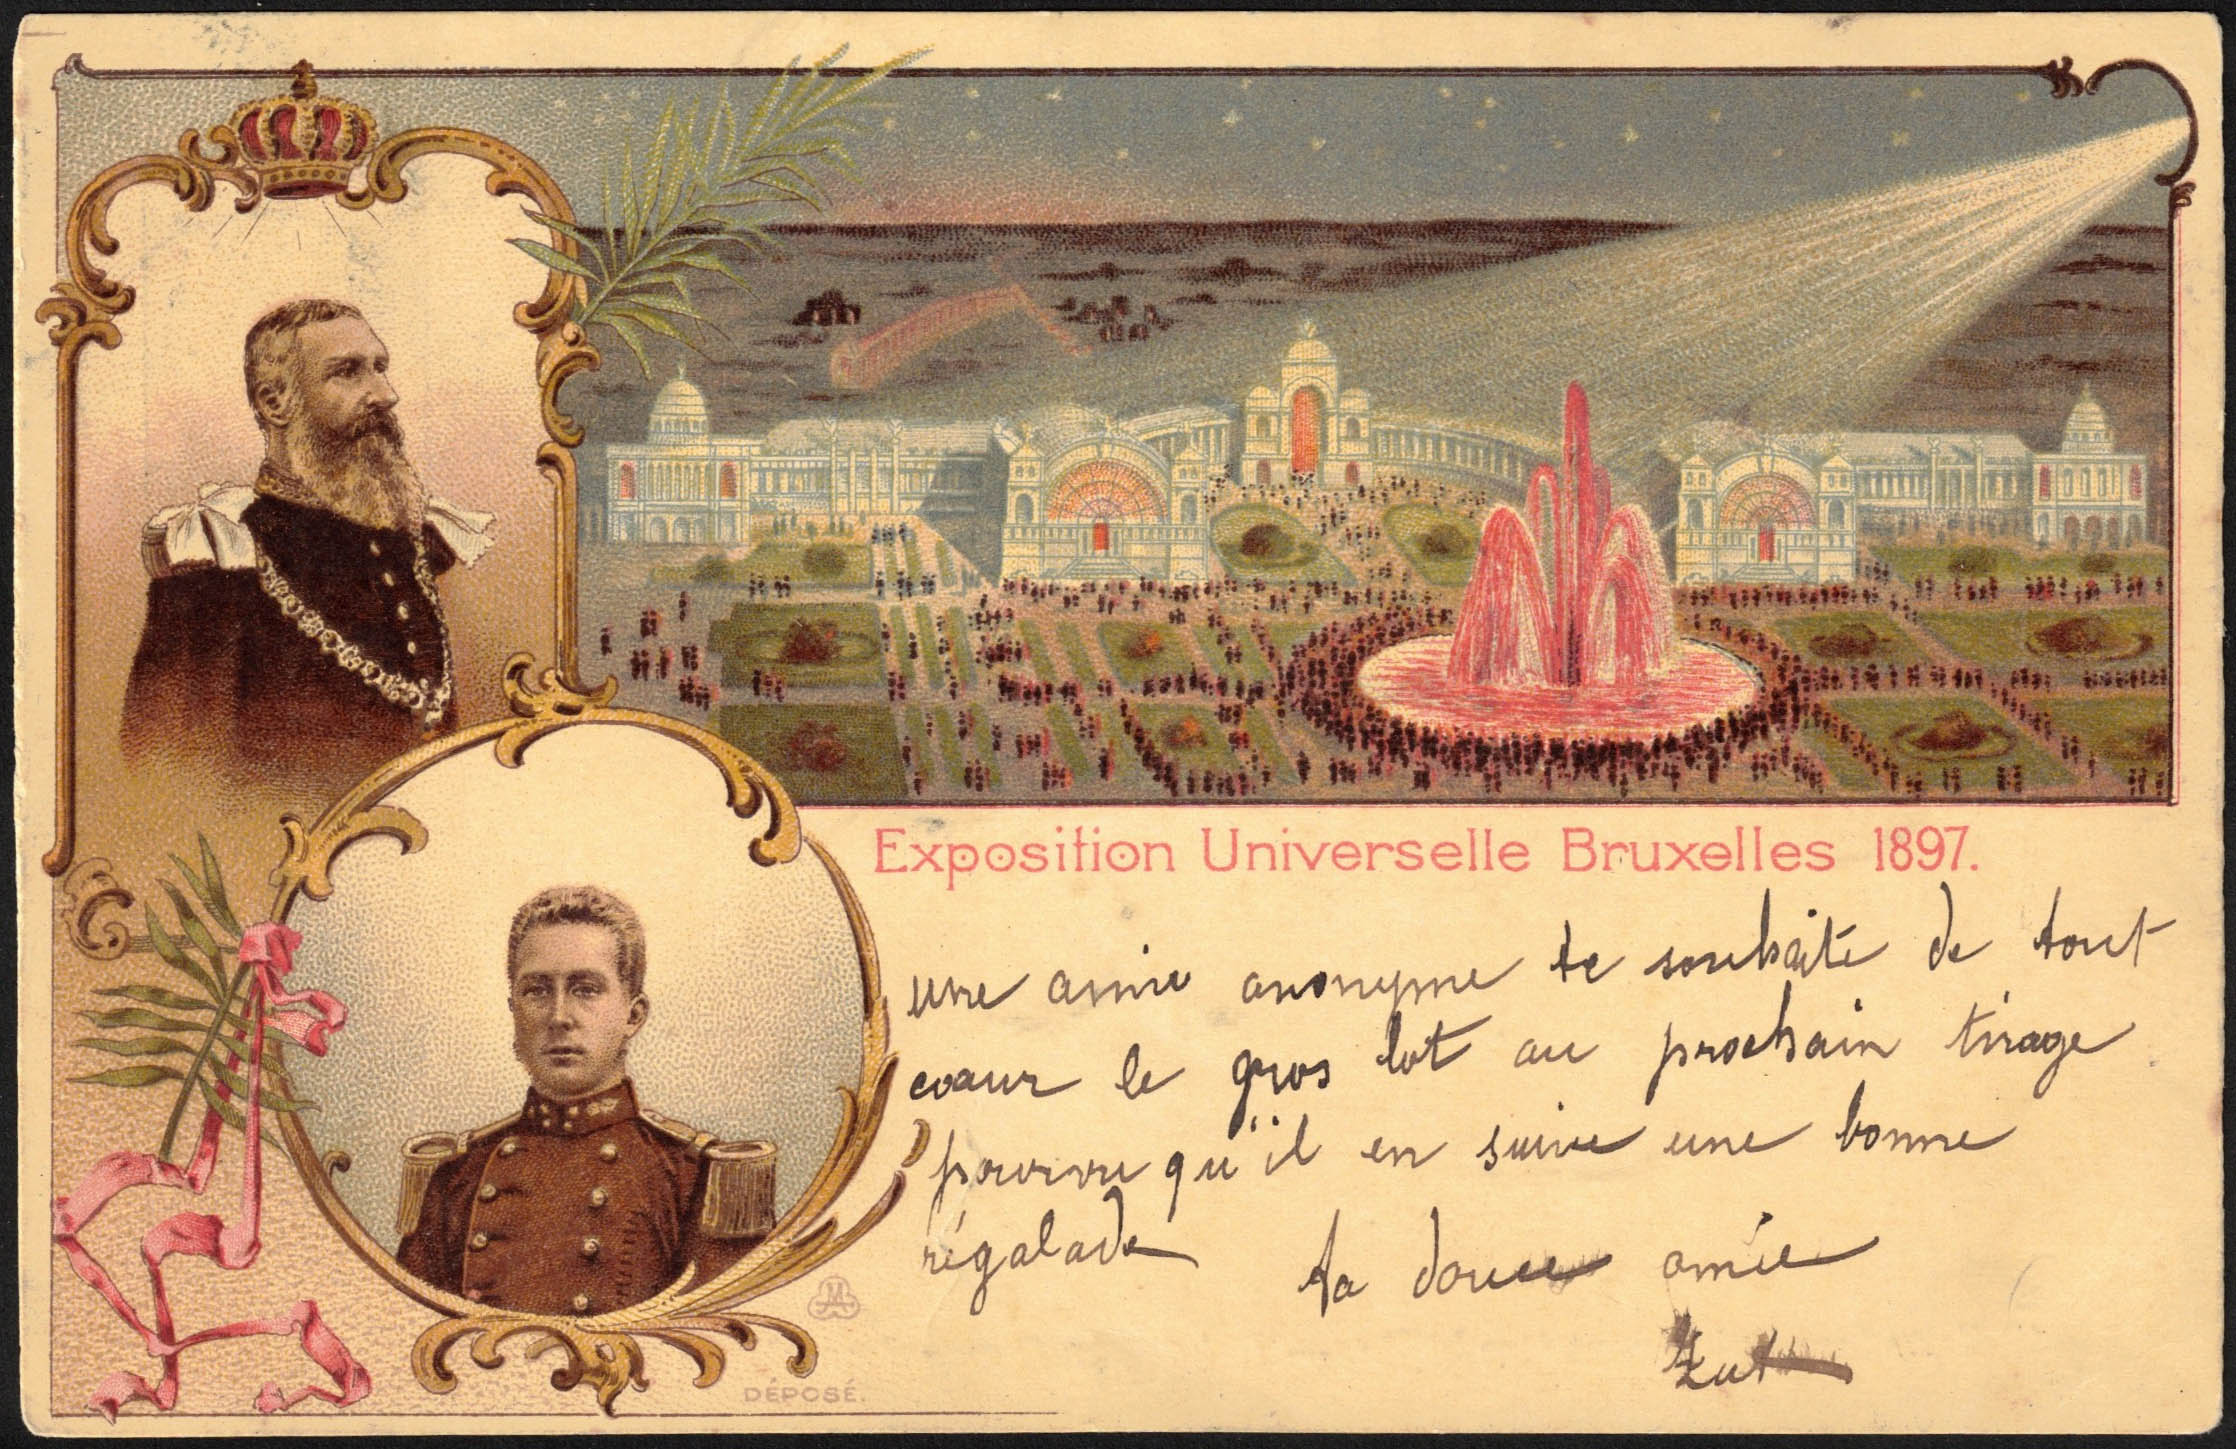 Exposition Universelle Bruxelles 1897.
une amie anonyme te souhaite de tout
cœur le gros lot au prochain tirage
pourvu qu'il en suive une bonne
régalade ta douce amie
Zut
DÉPOSÉ.